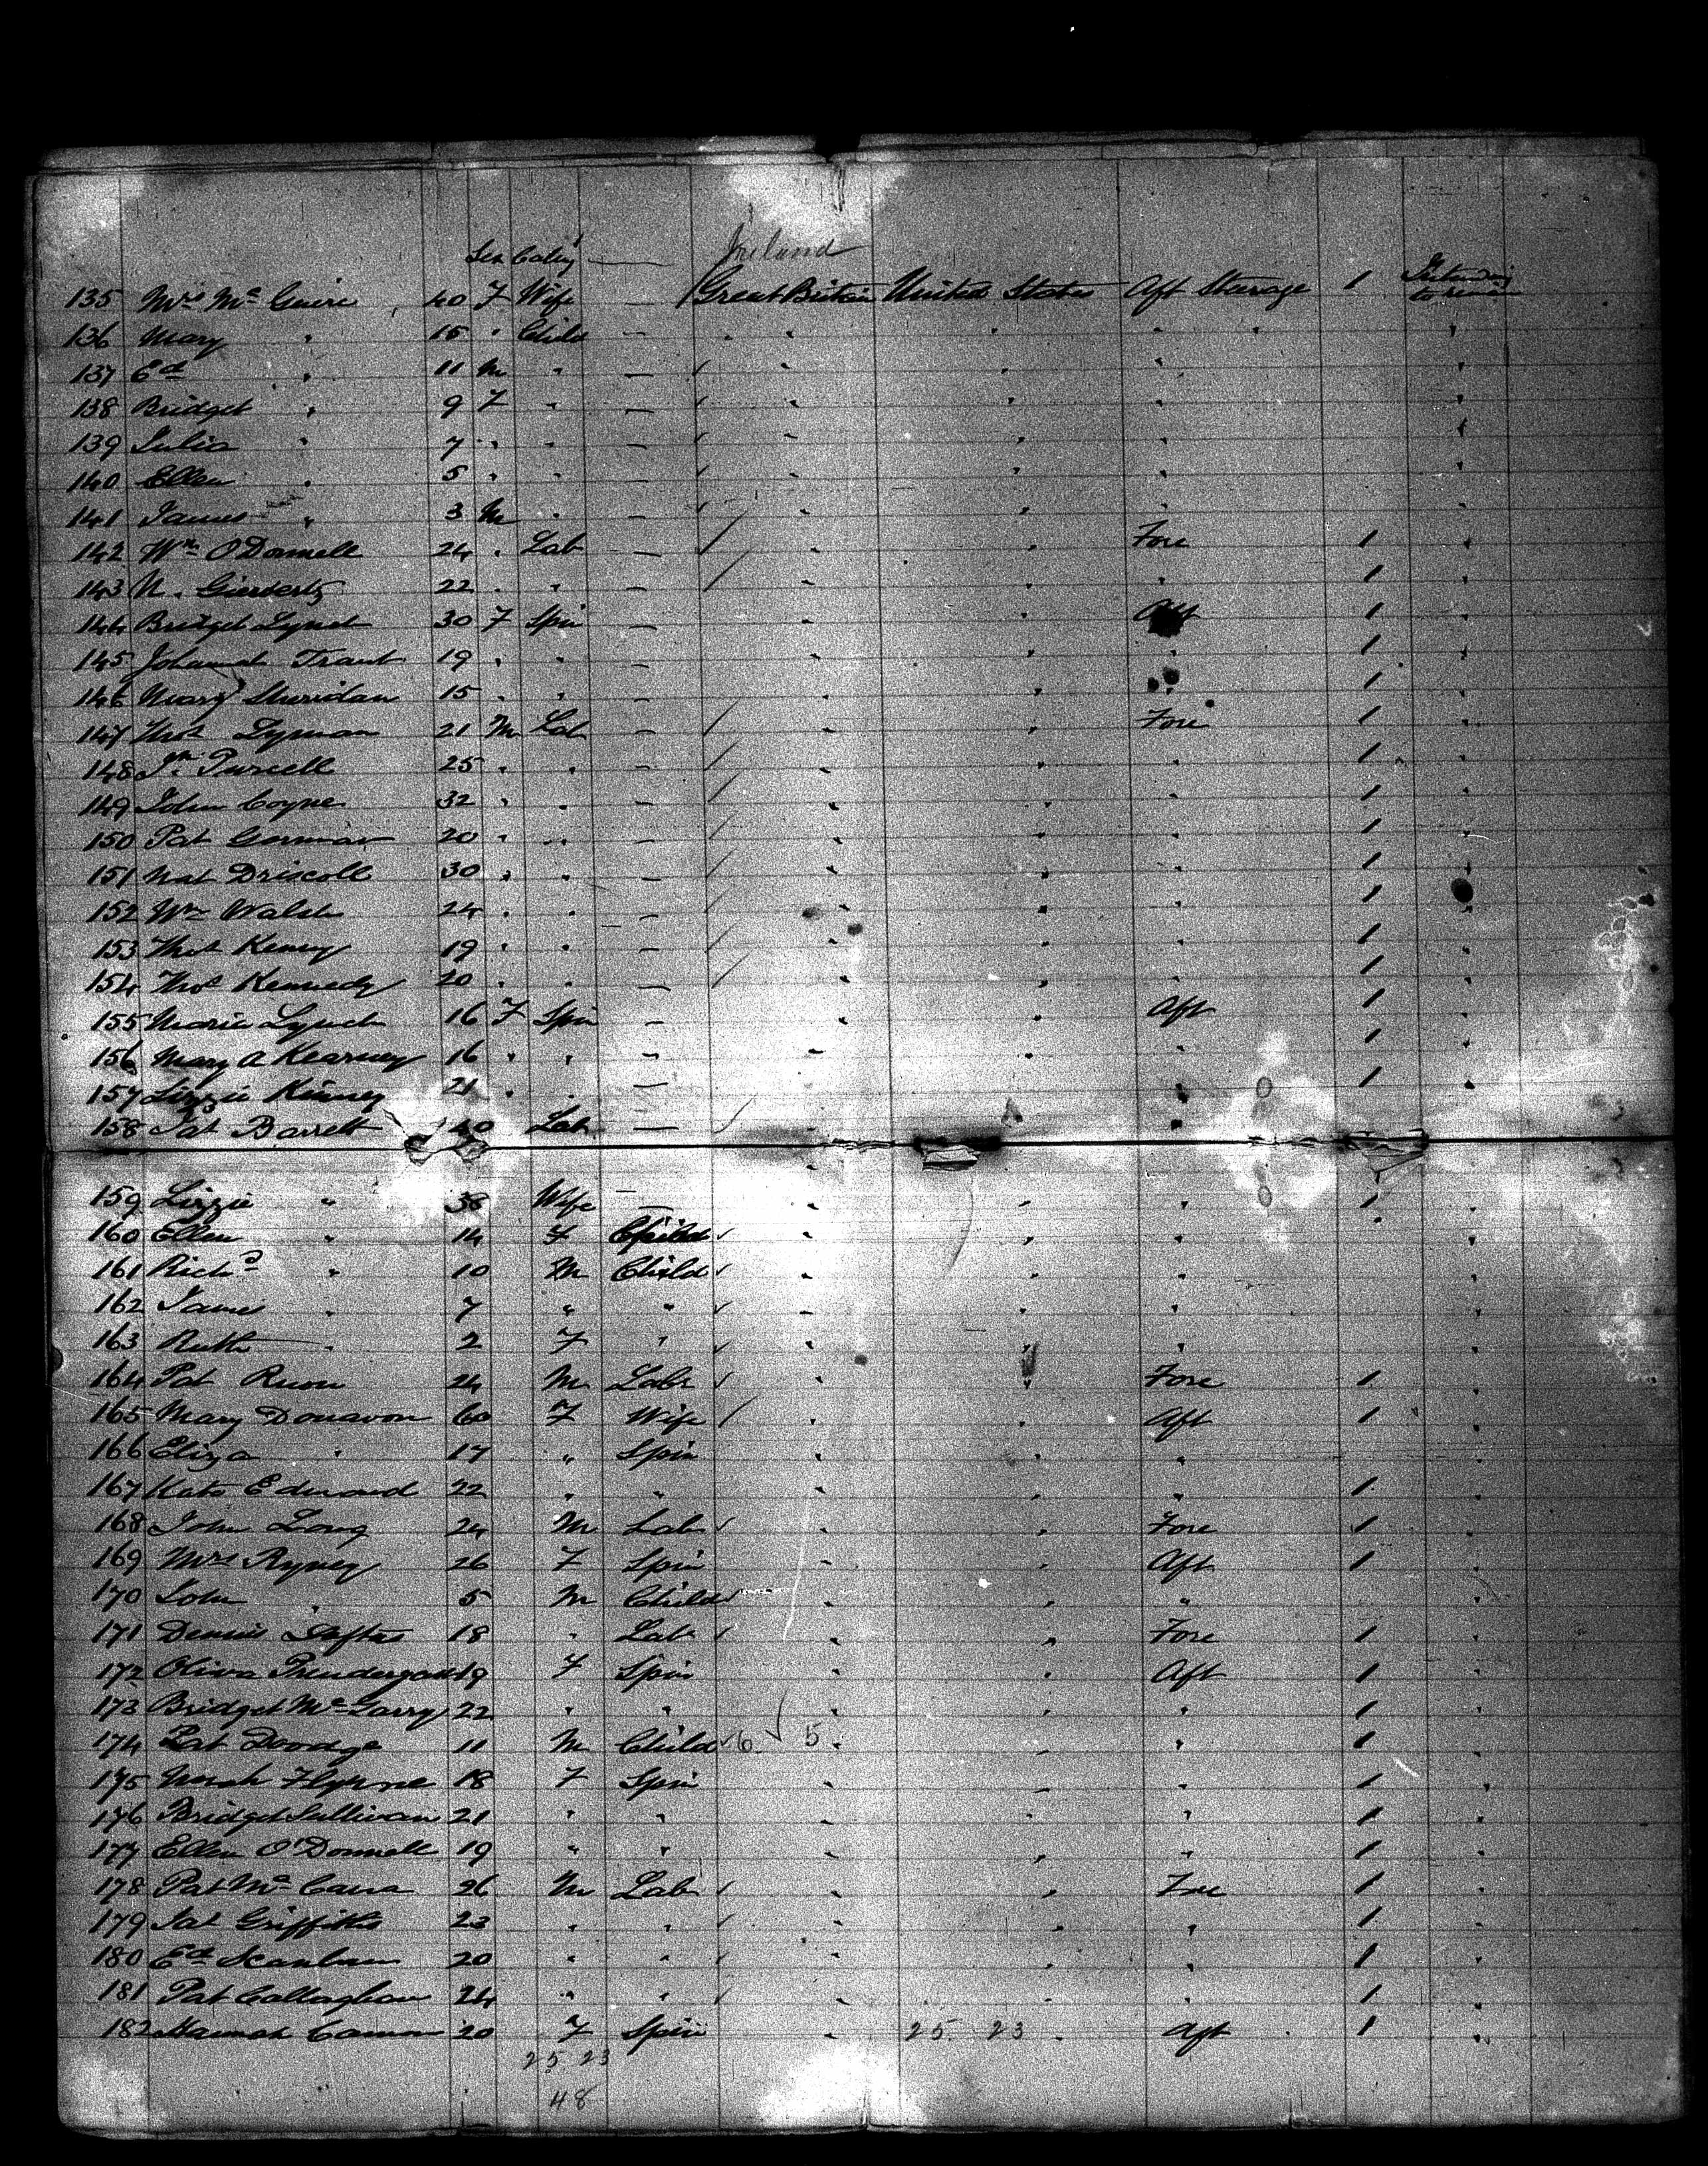 Sex Calling — Ireland
135 Mrs McGuire 40 F Wife — Great Britain United States Aft Steerage 1 Intending to remain
136 Mary " 15 " Child — " " " " "
137 Ed " 11 M " — " " " "
138 Bridget " 9 F " — " " " "
139 Julia " 7 " " — " " " "
140 Ellen " 5 " " — " " " "
141 James " 3 M " — " " " "
142 Wm O'Donnell 24 " Lab — " " Fore 1 "
143 N. 22 " " — " " " 1 "
144 Bridget Lynch 30 F Spin — " " Aft 1 "
145 Johannah Trant 19 " " — " " " 1 "
146 Mary Sheridan 15 " " — " " " 1 "
147 Thos Lyman 21 M Lab — " " Fore 1 "
148 Jn Purcell 25 " " — " " " 1 "
149 John Coyne 32 " " — " " " 1 "
150 Pat Gorman 20 " " — " " " 1 "
151 Nat Driscoll 30 " " — " " " 1 "
152 Wm Walsh 24 " " — " " " 1 "
153 Thos Kenny 19 " " — " " " 1 "
154 Thos Kennedy 20 " " — " " " 1 "
155 Maria Lynch 16 F Spin — " " Aft 1 "
156 Mary A Kearney 16 " " — " " " 1 "
157 Lizzie Kinney 21 " " — " " " 1 "
158 Pat Barrett 40 Lab — " "
159 Lizzie " 38 Wife — " " " 1 "
160 Ellen " 14 F Child " " " "
161 Richd " 10 M Child " " " "
162 James " 7 " " " " " "
163 Ruth " 2 F " " " " "
164 Pat 24 M Labr " " Fore 1 "
165 Mary Donavon 60 F Wife " " Aft 1 "
166 Eliza " 17 " Spin " " " "
167 Kate Edmond 22 " " " " " 1 "
168 John Long 24 M Lab " " Fore 1 "
169 Mrs Ryney 26 F Spin " " Aft 1 "
170 John " 5 M Child " " " "
171 Dennis 18 " Lab " " Fore 1 "
172 Oliva Prendergast 19 F Spin " " Aft 1 "
173 Bridget McGarry 22 " " " " " 1 "
174 Pat Doodge 11 M Child 6 5 " " " 1 "
175 Norah Flynne 18 F Spin " " " 1 "
176 Bridget Sullivan 21 " " " " " 1 "
177 Ellen O'Donnell 19 " " " " " 1 "
178 Pat McCarra 26 M Lab " " Fore 1 "
179 Pat Griffiths 23 " " " " " 1 "
180 Ed Scanlan 20 " " " " " 1 "
181 Pat Callaghan 24 " " " " " 1 "
182 Hannah 20 F Spin " 25 23 " Aft 1 "
25 23
48